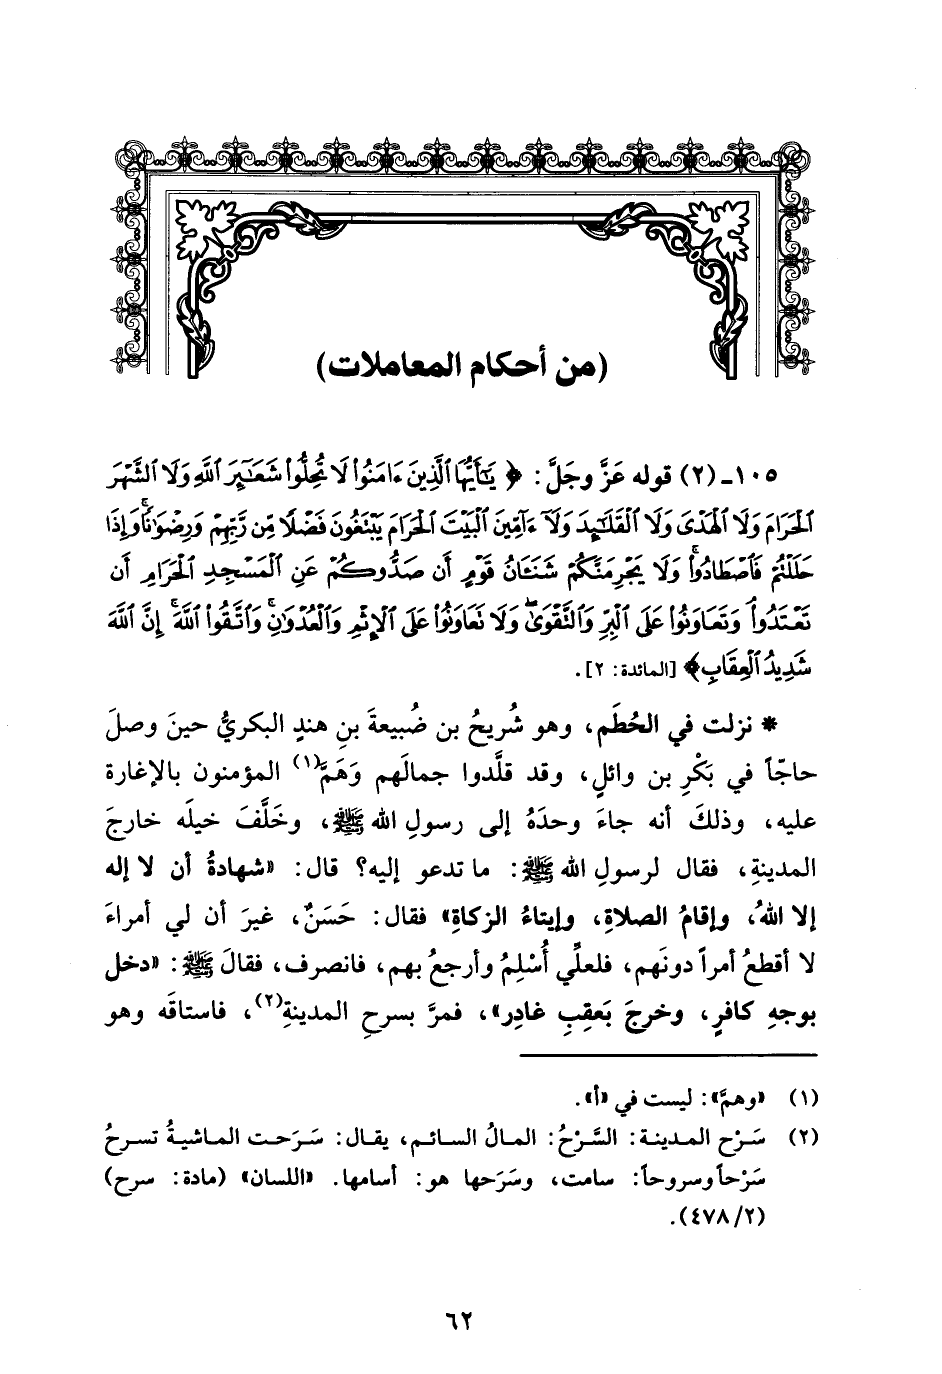 (من أحكام المعاملات)
١٠٥ـ (٢) قوله عَزَّ وجَلَّ: ﴿ يَٰٓأَيُّهَا ٱلَّذِينَ ءَامَنُوا۟ لَا تُحِلُّوا۟ شَعَٰٓئِرَ ٱللَّهِ وَلَا ٱلشَّهْرَ
ٱلْحَرَامَ وَلَا ٱلْهَدْىَ وَلَا ٱلْقَلَٰٓئِدَ وَلَآ ءَآمِّينَ ٱلْبَيْتَ ٱلْحَرَامَ يَبْتَغُونَ فَضْلًا مِّن رَّبِّهِمْ وَرِضْوَٰنًا ۚ وَإِذَا
حَلَلْتُمْ فَٱصْطَادُوا۟ ۚ وَلَا يَجْرِمَنَّكُمْ شَنَـَٔانُ قَوْمٍ أَن صَدُّوكُمْ عَنِ ٱلْمَسْجِدِ ٱلْحَرَامِ أَن
تَعْتَدُوا۟ ۘ وَتَعَاوَنُوا۟ عَلَى ٱلْبِرِّ وَٱلتَّقْوَىٰ ۖ وَلَا تَعَاوَنُوا۟ عَلَى ٱلْإِثْمِ وَٱلْعُدْوَٰنِ ۚ وَٱتَّقُوا۟ ٱللَّهَ ۖ إِنَّ ٱللَّهَ
شَدِيدُ ٱلْعِقَابِ﴾ [المائدة: ٢].
* نزلت في الحُطَم، وهو شُريحُ بن ضُبيعةَ بنِ هندٍ البكريُّ حينَ وصلَ
حاجّاً في بَكْرِ بن وائلٍ، وقد قلَّدوا جمالَهم وَهَمَّ(١) المؤمنون بالإغارة
عليه، وذلكَ أنه جاءَ وحدَهُ إلى رسولِ الله ﷺ، وخَلَّفَ خيلَه خارجَ
المدينةِ، فقال لرسولِ الله ﷺ: ما تدعو إليه؟ قال: «شهادةُ أن لا إله
إلا اللهُ، وإقامُ الصلاةِ، وإيتاءُ الزكاةِ» فقال: حَسَنٌ، غيرَ أن لي أمراءَ
لا أقطعُ أمراً دونَهم، فلعلِّي أُسْلِمُ وأرجعُ بهم، فانصرف، فقالَ ﷺ: «دخل
بوجهِ كافرٍ، وخرجَ بَعقِبِ غادِرٍ»، فمرَّ بسرحِ المدينةِ(٢)، فاستاقَه وهو
(١) «وهمَّ»: ليست في «أ».
(٢) سَرْح المدينة: السَّرْحُ: المالُ السائم، يقال: سَرَحت الماشيةُ تسرحُ
سَرْحاً وسروحاً: سامت، وسَرَحها هو: أسامها. «اللسان» (مادة: سرح)
(٢/ ٤٧٨).
٦٢